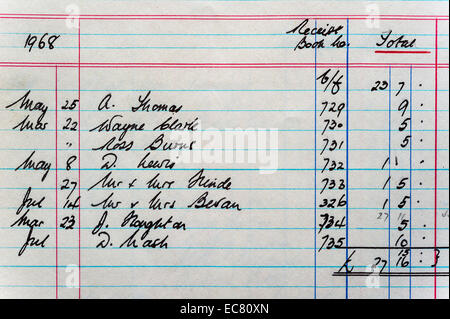 Receipt
1968 Book No. Total
b/f 23 7 :
May 25 A. Thomas 729 9 :
Mar 22 Wayne Clark 730 5 :
" Ross Burns 731 5 :
May 8 D. Lewis 732 1 :
27 Mr & Mrs Hinde 733 1 5 :
Jul 14 Mr & Mrs Bevan 326 1 5 :
Mar 23 J. Houghton 734 5 :
Jul D. Nash 735 10 :
£ 27 16 :
alamy stock photo
EC80XN
www.alamy.com